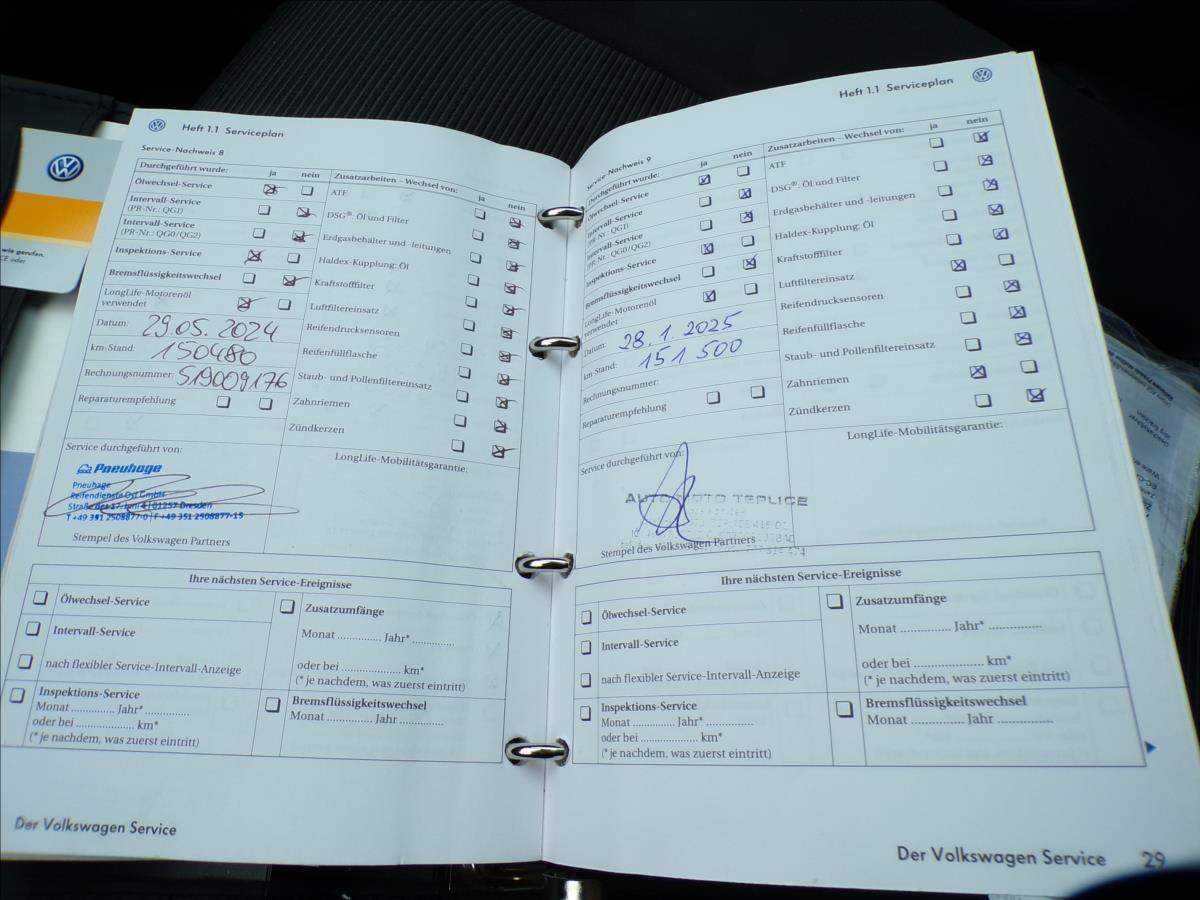 Heft 1.1 Serviceplan
Service-Nachweis 8
Durchgeführt wurde: ja nein
Ölwechsel-Service
Intervall-Service
(PR-Nr.: QG1)
Intervall-Service
(PR-Nr.: QG0/QG2)
Inspektions-Service
Bremsflüssigkeitswechsel
LongLife-Motorenöl
verwendet
Datum: 29.05.2024
km-Stand: 150480
Rechnungsnummer: 519009176
Reparaturempfehlung
Zusatzarbeiten – Wechsel von: ja nein
ATF
DSG®: Öl und Filter
Erdgasbehälter und -leitungen
Haldex-Kupplung: Öl
Kraftstofffilter
Luftfiltereinsatz
Reifendrucksensoren
Reifenfüllflasche
Staub- und Pollenfiltereinsatz
Zahnriemen
Zündkerzen
Service durchgeführt von:
Pneuhage
Pneuhage
Reifendienste Ost GmbH
Straße des 17. Juni 4 | 01257 Dresden
T +49 351 2508877-0 | F +49 351 2508877-15
Stempel des Volkswagen Partners
LongLife-Mobilitätsgarantie:
Ihre nächsten Service-Ereignisse
Ölwechsel-Service
Intervall-Service
nach flexibler Service-Intervall-Anzeige
Inspektions-Service
Monat ............ Jahr* ............
oder bei .................... km*
(* je nachdem, was zuerst eintritt)
Zusatzumfänge
Monat ............ Jahr* ............
oder bei ................ km*
(* je nachdem, was zuerst eintritt)
Bremsflüssigkeitswechsel
Monat ............ Jahr ............
Der Volkswagen Service
Heft 1.1 Serviceplan
Service-Nachweis 9
Durchgeführt wurde: ja nein
Ölwechsel-Service
Intervall-Service
(PR-Nr.: QG1)
Intervall-Service
(PR-Nr.: QG0/QG2)
Inspektions-Service
Bremsflüssigkeitswechsel
LongLife-Motorenöl
verwendet
Datum: 28.1.2025
km-Stand: 151 500
Rechnungsnummer:
Reparaturempfehlung
Zusatzarbeiten – Wechsel von: ja nein
ATF
DSG®: Öl und Filter
Erdgasbehälter und -leitungen
Haldex-Kupplung: Öl
Kraftstofffilter
Luftfiltereinsatz
Reifendrucksensoren
Reifenfüllflasche
Staub- und Pollenfiltereinsatz
Zahnriemen
Zündkerzen
Service durchgeführt von:
AUTO MOTO TEPLICE
Stempel des Volkswagen Partners
LongLife-Mobilitätsgarantie:
Ihre nächsten Service-Ereignisse
Ölwechsel-Service
Intervall-Service
nach flexibler Service-Intervall-Anzeige
Inspektions-Service
Monat ............ Jahr* ............
oder bei .................... km*
(* je nachdem, was zuerst eintritt)
Zusatzumfänge
Monat ............ Jahr* ............
oder bei ................ km*
(* je nachdem, was zuerst eintritt)
Bremsflüssigkeitswechsel
Monat ............ Jahr ............
Der Volkswagen Service 29
wie gerufen.